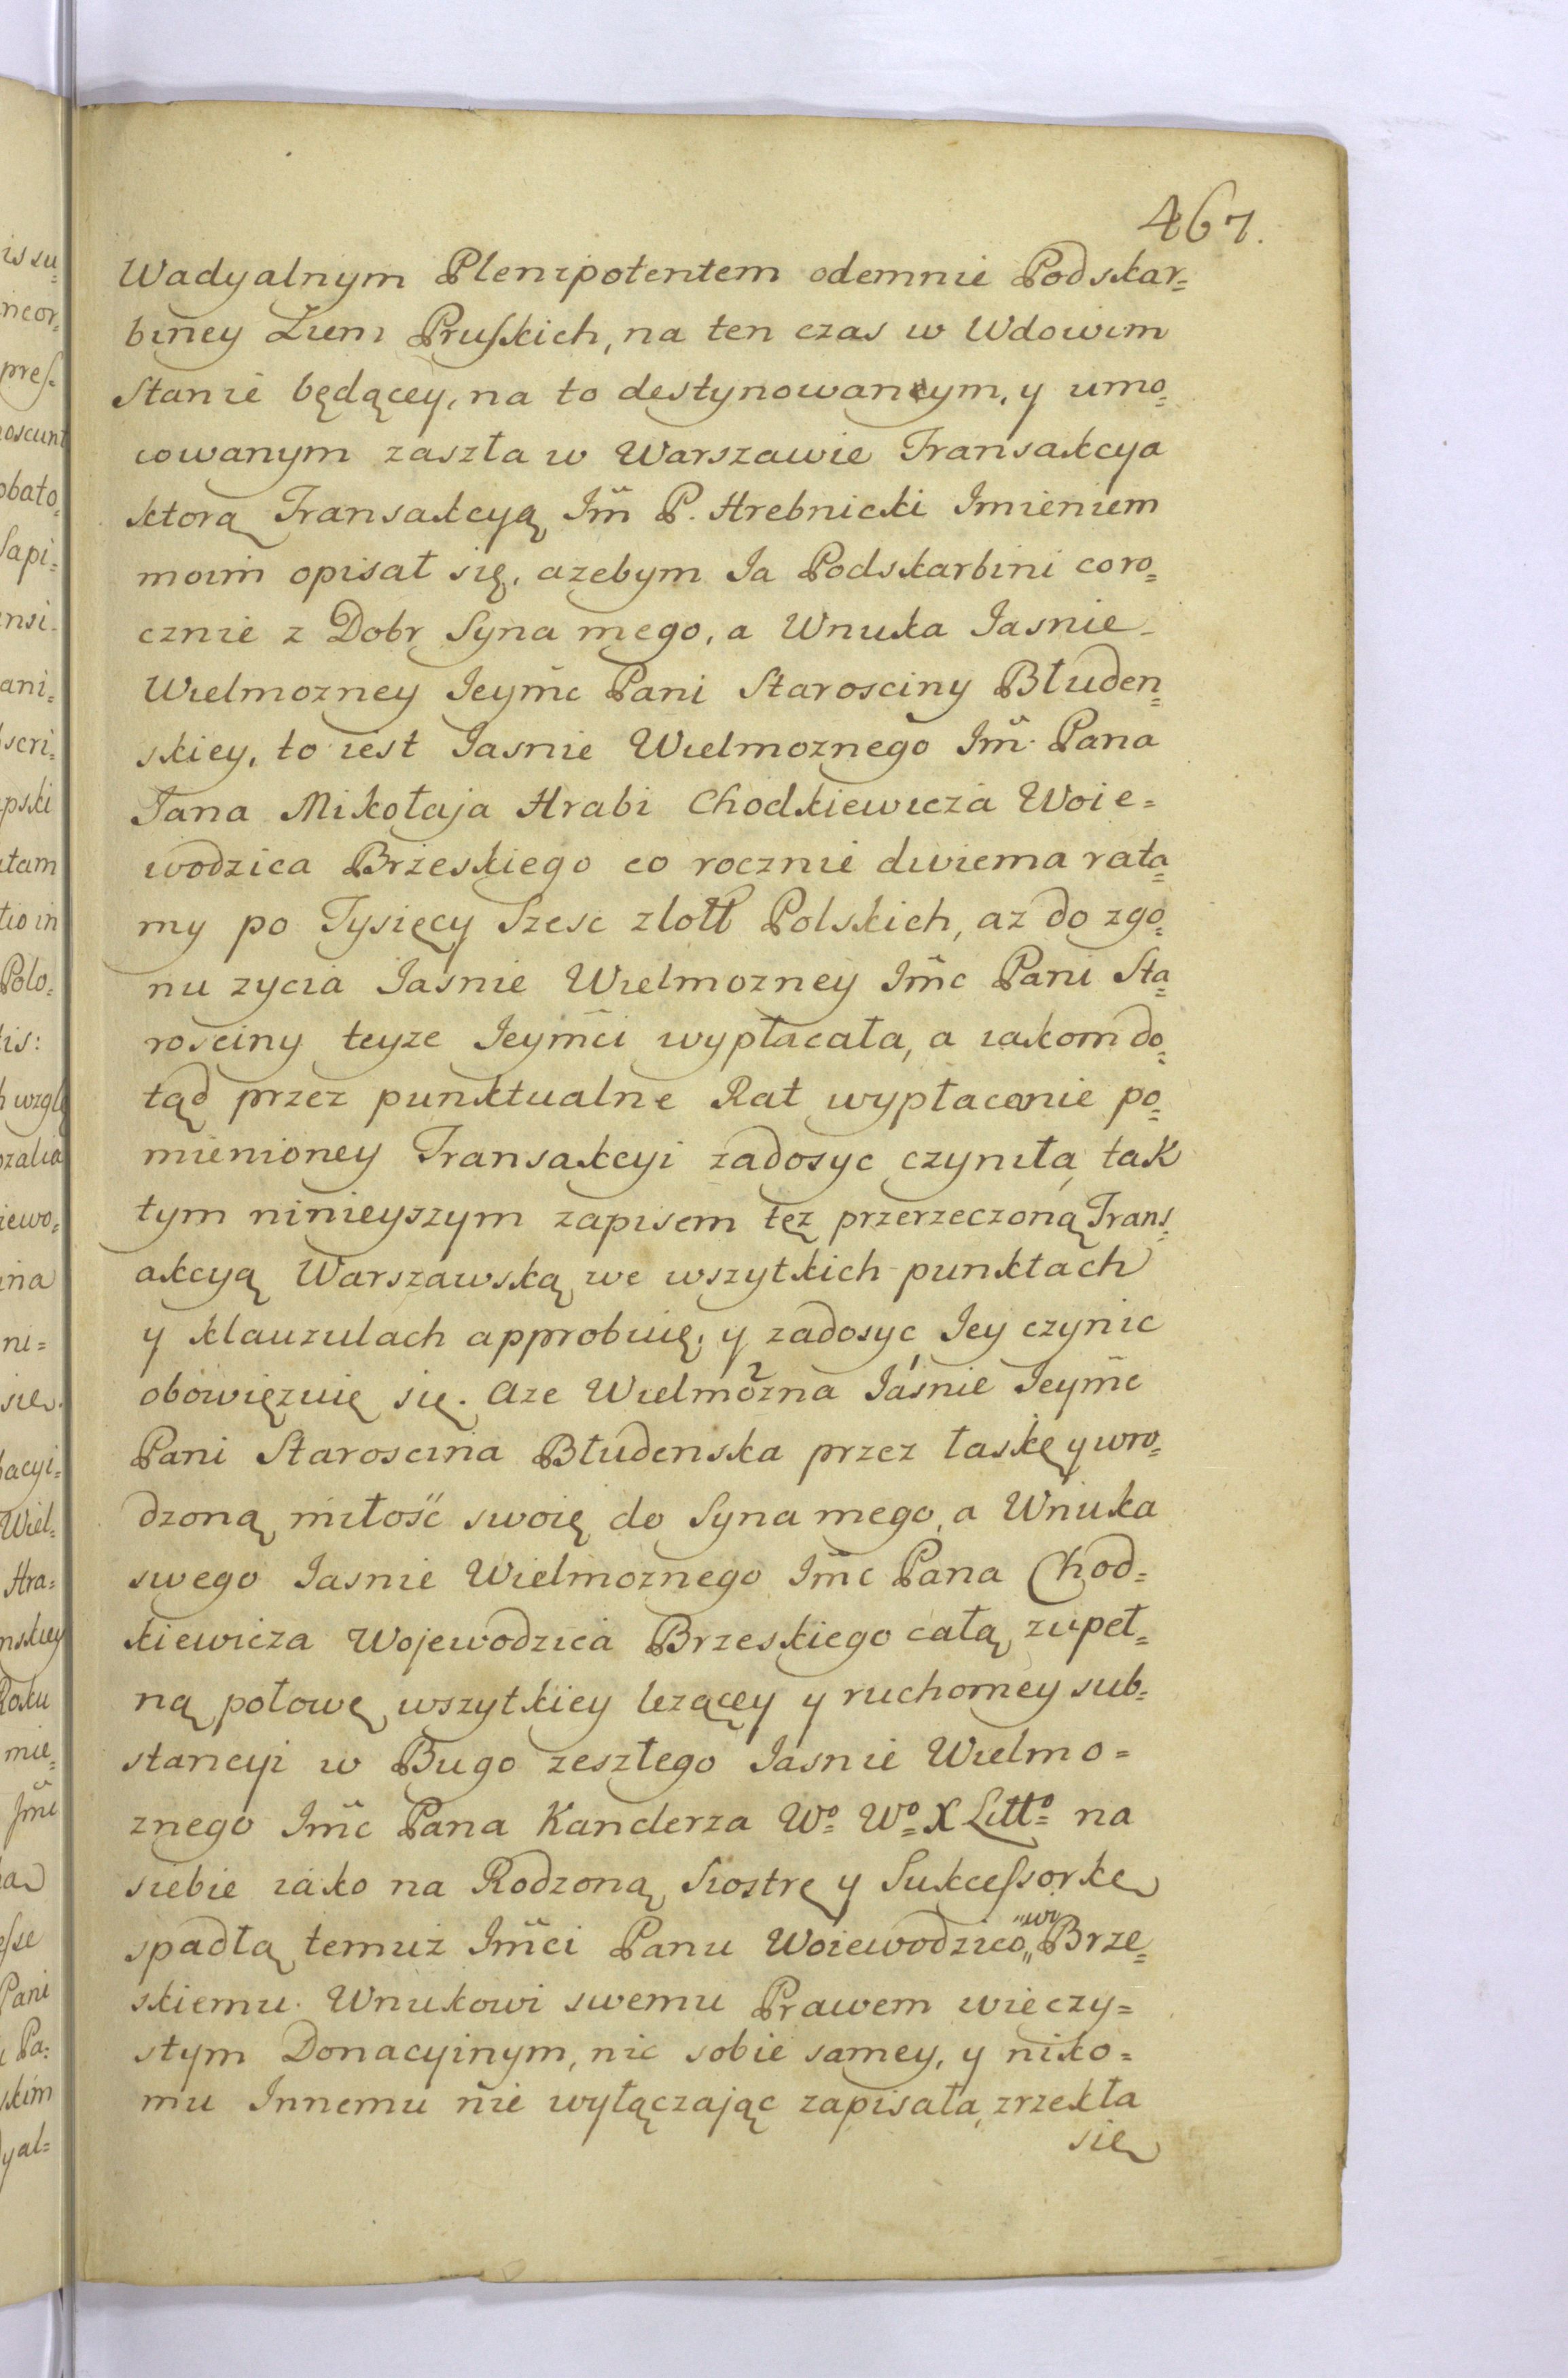 467.
Wadyalnym Plenipotentem odemnie Podskar=
biney Ziem Pruskich, na ten czas w Wdowim
Stanie będącey, na to destynowanym, y umo=
cowanym zaszła w Warszawie Transakcya
ktorą Transakcyą Im̃ P. Hrebnicki Imieniem
moim opisał się, azebym Ia Podskarbini coro=
cznie z Dobr Syna mego, a Wnuka Iasnie
Wielmozney Ieym̃c Pani Starosciny Błuden=
skiey, to iest Iasnie Wielmoznego Im̃ Pana
Jana Mikołaja Hrabi Chodkiewicza Woie=
wodzica Brzeskiego co rocznie dwiema rata=
my po Tysięcy Szesc złott Polskich, az do zgo=
nu zycia Iasnie Wielmozney Im̃c Pani Sta=
rosciny teyze Ieym̃ci wypłacała, a iakom do=
tąd przez punktualne Rat wypłacenie po=
mienioney Transakcyi zadosyc czyniła, tak
tym ninieyszym zapisem tęz przerzeczoną Trans=
akcyą Warszawską we wszytkich punktach
y klauzulach approbuię, y zadosyc Iey czynic
obowięzuię się. Aze Wielmozna 2 Iasnie 1 Ieym̃c
Pani Staroscina Błudenska przez łaskę y wro=
dzoną miłość swoię do Syna mego, a Wnuka
swego Iasnie Wielmoznego Im̃c Pana Chod=
kiewicza Wojewodzica Brzeskiego całą zupeł=
ną połowę wszytkiey lezącęy y ruchomey sub=
stancyi w Bugo zeszłego Iasnie Wielmo=
znego Im̃c Pana Kanclerza Wo Wo X Litto na
siebie iako na Rodzoną Siostrę y Sukcessorkę
spadłą temuz Im̃ci Panu Woiewodzicowi Brze=
skiemu. Wnukowi swemu Prawem wieczy=
stym Donacyinym, nic sobie samey, y niko=
mu Innemu nie wyłączając zapisała, zrzekła
się